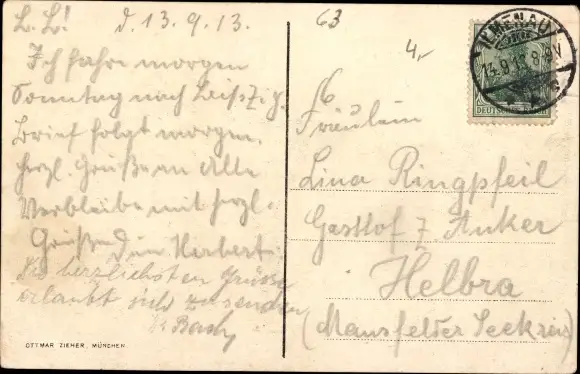 L. L! d. 13.9.13.
Ich fahre morgen
Sonntag nach
Brief folgt morgen.
herzl. Grüße an Alle
Verbleibe mit herzl.
Grüßen Dein Herbert.
Die herzlichsten Grüsse
erlaubt sich zu senden
OTTMAR ZIEHER, MÜNCHEN.
63
4,-
ILMENAU
13.9.13. 8-9V
DEUTSCHES REICH
Fräulein
Lina Ringpfeil
Gasthof z. Anker
Helbra
(Mansfelder Seekreis)